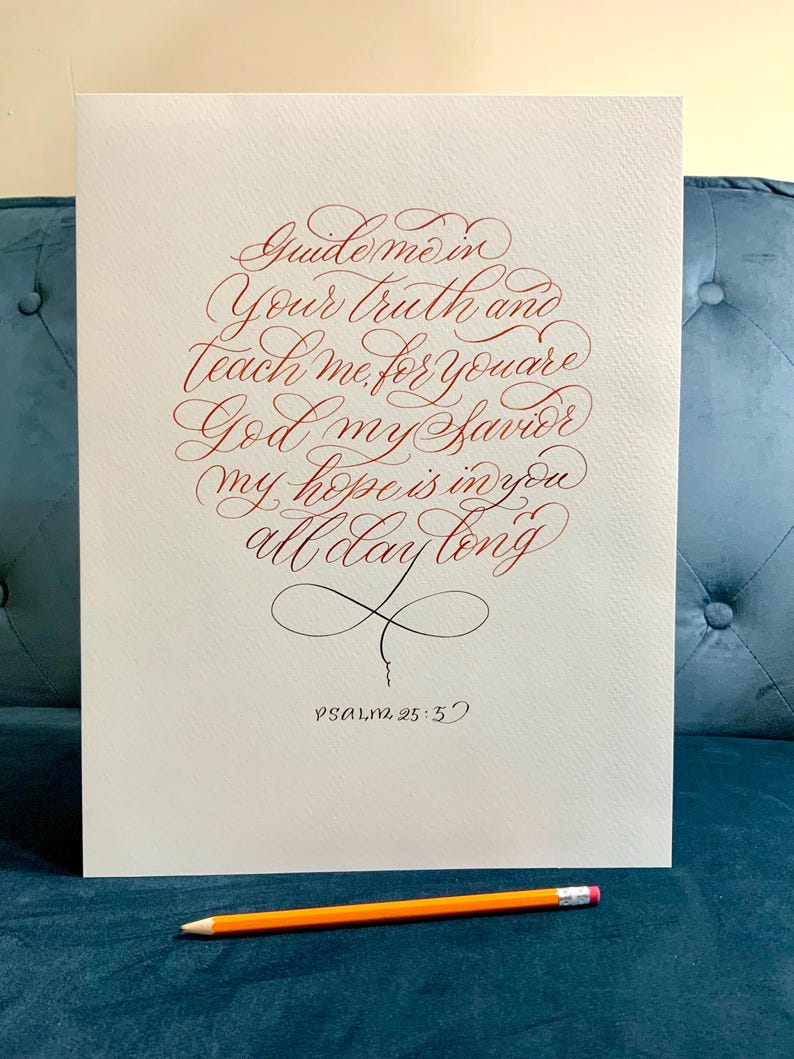 Guide me in
Your truth and
teach me, for you are
God my Savior
my hope is in you
all day long
PSALM 25:5